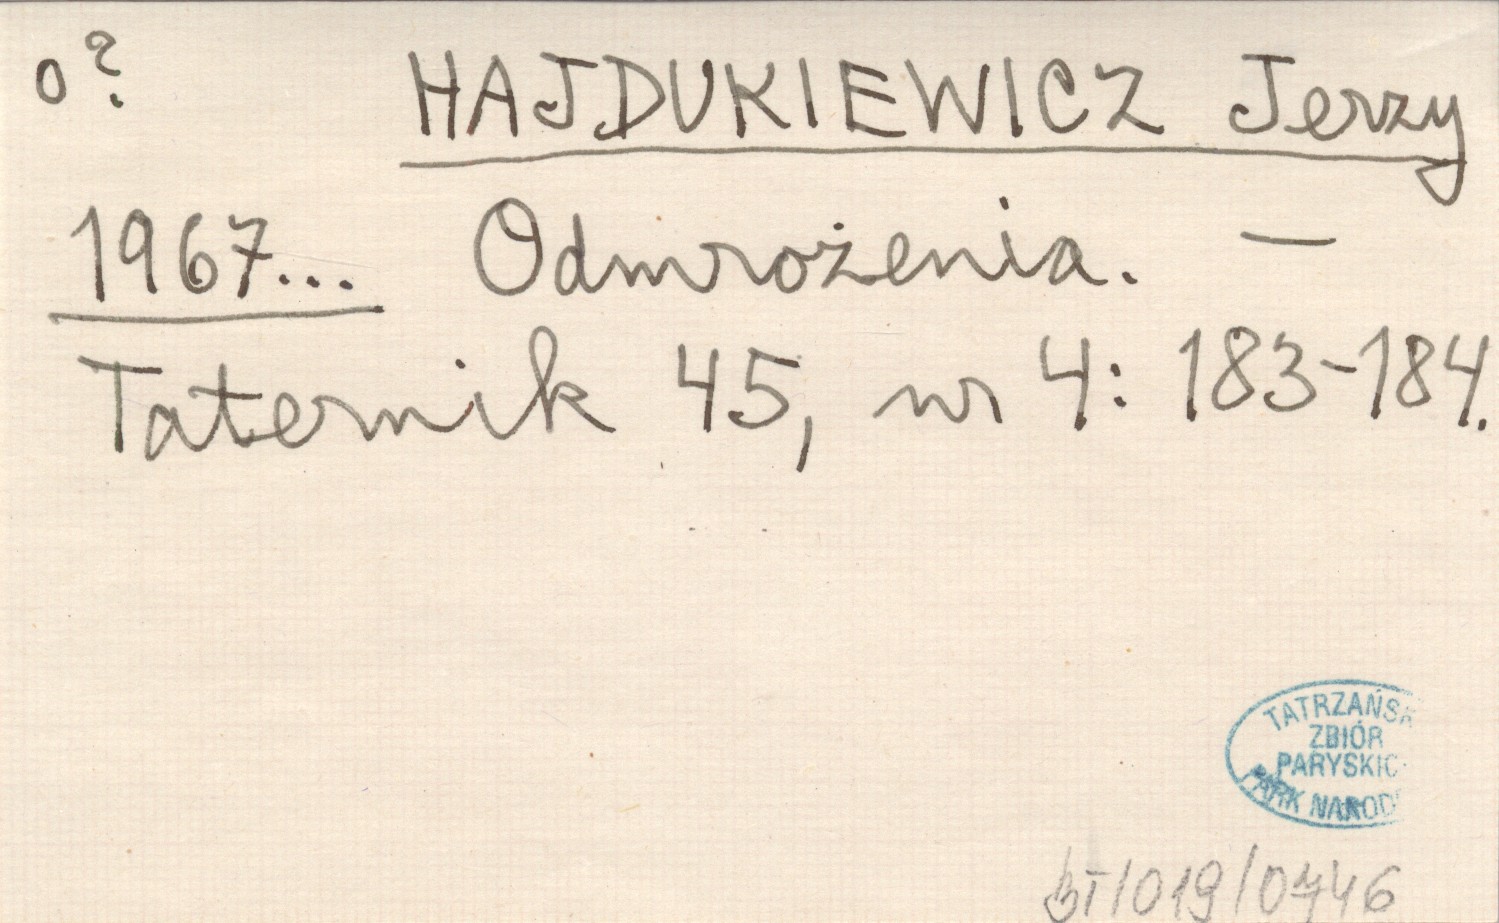 o?
HAJDUKIEWICZ Jerzy
1967... Odmrożenia. —
Taternik 45, nr 4: 183-184.
TATRZAŃSK
ZBIÓR
PARYSKIC
PARK NAROD
BT/019/0746